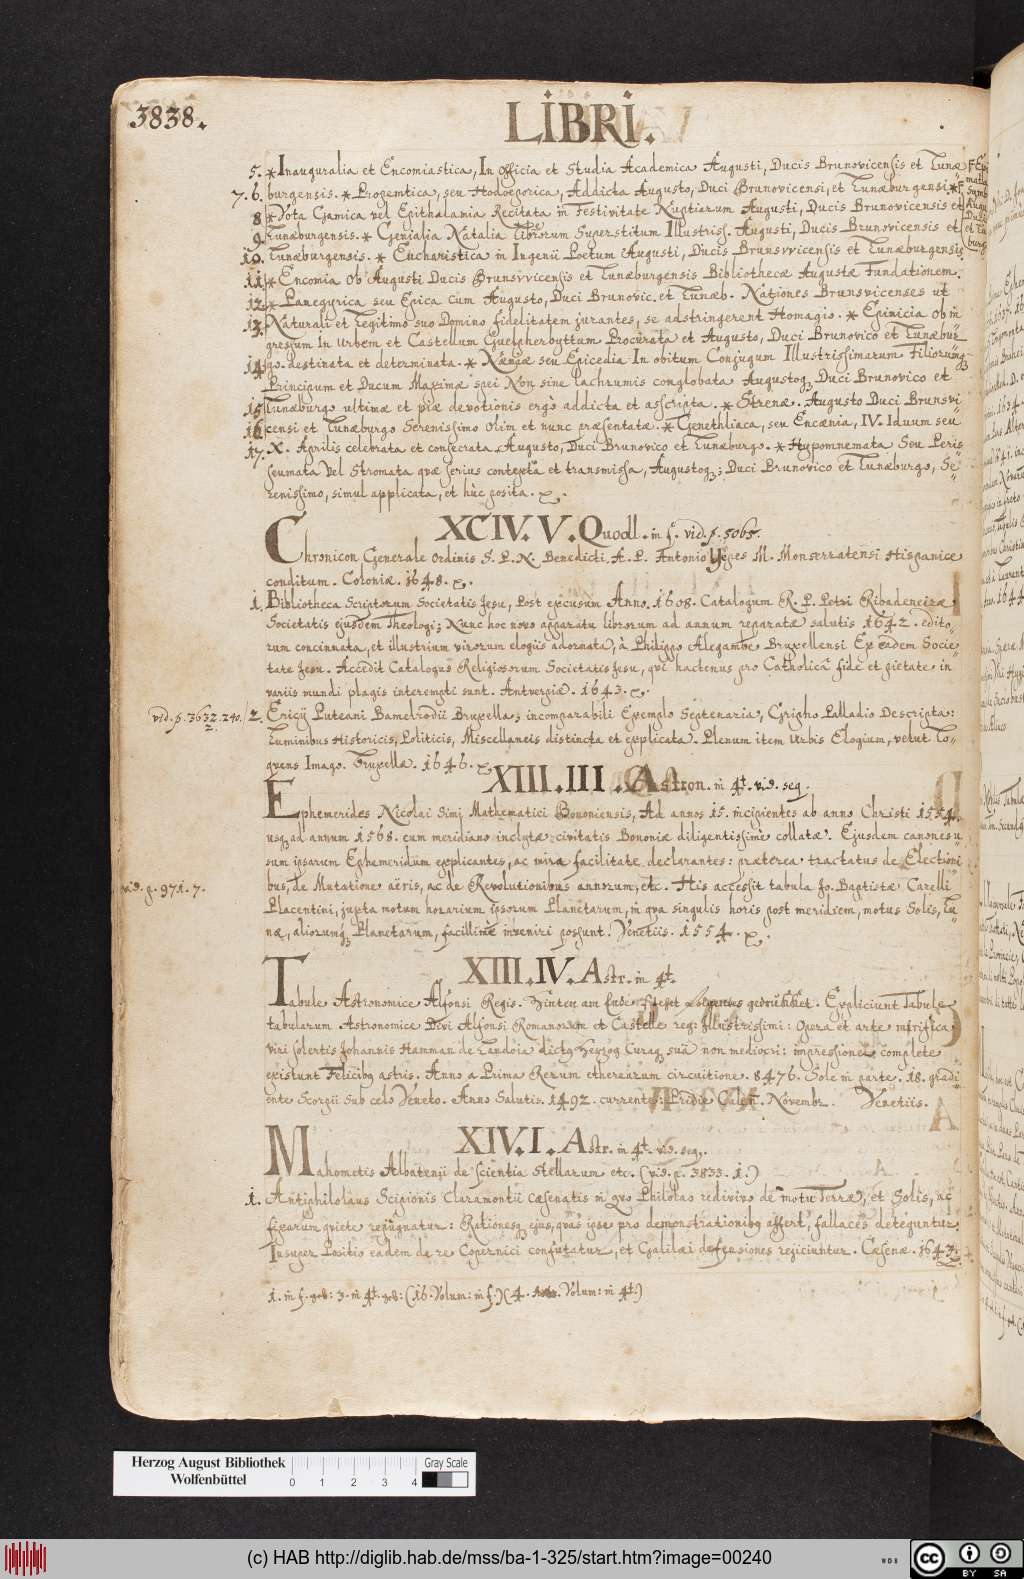 3838.
LIBRI.
5. *Inauguralia et Encomiastica, In Officia et Studia Academica Augusti, Ducis Brunovicensis et Lunæ=
7. 6. burgensis. *Propemtica, seu Hodoeporica, Addicta Augusto, Duci Brunovicensi, et Lunæburgensi. *
8 *Vota Gamica vel Epithalamia Recitata in Festivitate Nuptiarum Augusti, Ducis Brunovicensis et
9. Lunæburgensis. * Genialia Natalia Librorum Superstitum Illustriss. Augusti, Ducis Brunovicensis et
10. Lunæburgensis. * Eucharistica in Ingenii Poetum Augusti, Ducis Brunsvvicensis et Lunæburgensis.
11 *Encomia Ob Augusti Ducis Brunsvvicensis et Lunæburgensis Bibliothecæ Augustæ Fundationem.
12 * Panegyrica seu Epica Cum Augusto, Duci Brunovic. et Lunæb. Nationes Brunsvicenses ut
13. Naturali et Legitimo suo Domino fidelitatem jurantes, se adstringerent Homagio. * Epinicia Ob in
gressum In Urbem et Castellum Guelpherbyttum Procurata et Augusto, Duci Brunovico et Lunæbur=
14 go. destinata et determinata. * Næniæ seu Epicedia In obitum Conjugum Illustrissimarum Filiorumq3
Principum et Ducum Maximæ spei Non sine lachrumis conglobata Augustoq3 Duci Brunovico et
15 Lunæburgo ultimæ et piæ devotionis ergò addicta et asscripta. * Strenæ. Augusto Duci Brunsvi=
16 censi et Lunæburgo Serenissimo Olim et nunc præsentatæ. * Genethliaca, seu Encænia, IV. Iduum seu
17. X. Aprilis celebrata et consecrata Augusto, Duci Brunovico et Lunæburgo. * Hypomnemata Seu Peris
seumata Vel Stromata quæ serius contexta et transmissa, Augustoq3; Duci Brunovico et Lunæburgo, Se=
renissimo, simul applicata, et hùc posita.
XCIV. V. Quodl. in f. vid. p. 5065.
Chronicon Generale Ordinis S. P. N. Benedicti. A. P. Antonio Yepes M. Monserratensi Hispanice
conditum. Coloniæ. 1648.
1. Bibliotheca Scriptorum Societatis Jesu, Post excusum Anno. 1608. Catalogum R. P. Petri Ribadeneiræ
Societatis ejusdem Theologi; Nunc hoc novo apparatu librorum ad annum reparatæ salutis 1642. edito=
rum concinnata, et illustrium virorum elogiis adornata, à Philippo Alegambe Bruxellensi Ex eadem Socie=
tate Jesu. Accedit Catalogus Religiosorum Societatis Jesu, qui hactenus pro Catholicâ fide et pietate in
variis mundi plagis interempti sunt. Antverpiæ. 1643.
vid. p. 3632. 240. 2. Ericÿ Puteani Bamelrodii Bruxella; incomparabili Exemplo Septenaria, Gripho Palladio Descripta:
Luminibus Historicis, Politicis, Miscellaneis distincta et explicata. Plenum item Urbis Elogium, velut Lo=
quens Imago. Bruxellæ. 1646.
XIII. III. Astron. in 4t. vid. seq.
Ephemerides Nicolai Simi Mathematici Bononiensis, Ad annos 15. incipientes ab anno Christi 1554.
usq3 ad annum 1568. cum meridiano inclytæ civitatis Bononiæ diligentissimè collatæ. Ejusdem canones u=
sum ipsarum Ephemeridum explicantes, ac mira facilitate declarantes: præterea tractatus de Electioni=
vid. p. 971. 7. bus, de Mutatione aëris, ac de Revolutionibus annorum, etc. His accessit tabula Jo. Baptistæ Carelli
Placentini, juxta motum horarium ipsorum Planetarum, in qva singulis horis post meridiem, motus Solis, Lu=
næ, aliorumq3 Planetarum, facillimè inveniri possunt. Venetiis. 1554.
XIII. IV. Astr. in 4t.
Tabule Astronomice Alfonsi Regis. Hinten am Ende stehet gedrükket. Expliciunt Tabule
tabularum Astronomice Divi Alfonsi Romanorum et Castelle reg: Illustrissimi: Opera et arte mirifica
viri solertis Johannis Hamman de Landoia dictq Hertzog Curaq suâ non mediocri: impressione complete
existunt Felicibq astris. Anno a Prima Rerum etherearum circuitione. 8476. Sole in parte. 18. gradi=
ente Scorpii Sub celo Veneto. Anno Salutis. 1492. currente: Pridie Calen. Novembr. Venetiis.
XIV. I. Astr. in 4t. vid. seq.
Mahometis Albatenii de scientia Stellarum etc. (vid. p. 3833. 1.)
1. Antiphilolaus Scipionis Claramontii Cæsenatis in quo Philolao redivivo de motu Terræ, et Solis, ac
fixarum quiete repugnatur: Rationesq3 ejus, quas ipse pro demonstrationibq affert, fallaces deteguntur
Insuper Positio eadem de re Copernici confutatur, et Galilæi defensiones rejiciuntur. Cæsenæ. 1643.
1. in f. geb: 3. in 4t. geb: (16. Volum: in f.)(4. Volum: in 4t.)
Herzog August Bibliothek
Wolfenbüttel
0 1 2 3 4
Gray Scale
(c) HAB http://diglib.hab.de/mss/ba-1-325/start.htm?image=00240
WDB
cc BY SA